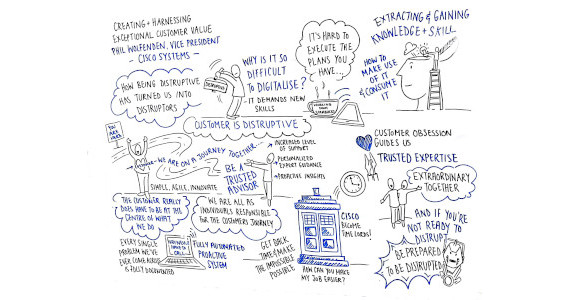 CREATING + HARNESSING
EXCEPTIONAL CUSTOMER VALUE
PHIL WOLFENDEN, VICE PRESIDENT
- CISCO SYSTEMS -
HOW BEING DISRUPTIVE
HAS TURNED US INTO
DISRUPTORS
WHY IS IT SO
DIFFICULT
TO DIGITALISE?
IT DEMANDS NEW
SKILLS
IT'S HARD TO
EXECUTE THE
PLANS YOU
HAVE...
EXTRACTING & GAINING
KNOWLEDGE + SKILL
HOW TO
MAKE USE
OF IT
& CONSUME
IT
CUSTOMER IS DISRUPTIVE
YOU
ARE
HERE
WE ARE ON A JOURNEY TOGETHER
SIMPLE, AGILE, INNOVATE
BE A
TRUSTED
ADVISOR
INCREASED LEVEL
OF SUPPORT
PERSONALIZED
EXPERT GUIDANCE
PROACTIVE INSIGHTS
CUSTOMER OBSESSION
GUIDES US
TRUSTED EXPERTISE
EXTRAORDINARY
TOGETHER
THE CUSTOMER REALLY
DOES HAVE TO BE AT THE
CENTRE OF WHAT
WE DO
WE ARE ALL AS
INDIVIDUALS RESPONSIBLE
FOR THE CUSTOMERS JOURNEY
CISCO
BECAME
TIME LORDS!
AND IF YOU'RE
NOT READY TO
DISRUPT
BE PREPARED
TO BE DISRUPTED
EVERY SINGLE
PROBLEM WE'VE
EVER COME ACROSS
IS FULLY DOCUMENTED
FULLY AUTOMATED
PROACTIVE
SYSTEM
GET BACK
TIME & MAKE
THE IMPOSSIBLE
POSSIBLE
HOW CAN YOU MAKE
MY JOB EASIER?